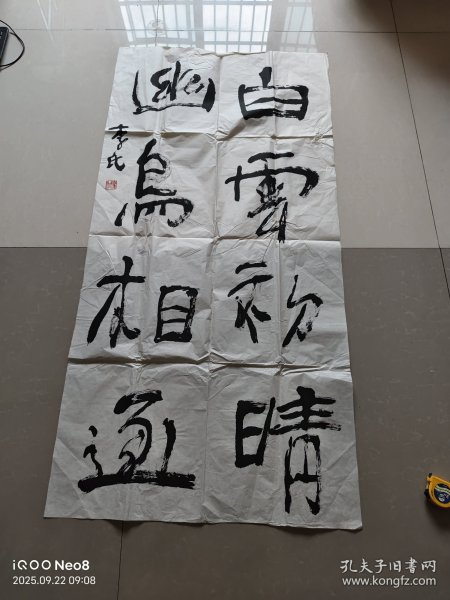 白雲初晴
幽鳥相逐
iQOO Neo8
2025.09.22 09:08
孔夫子旧书网
www.kongfz.com